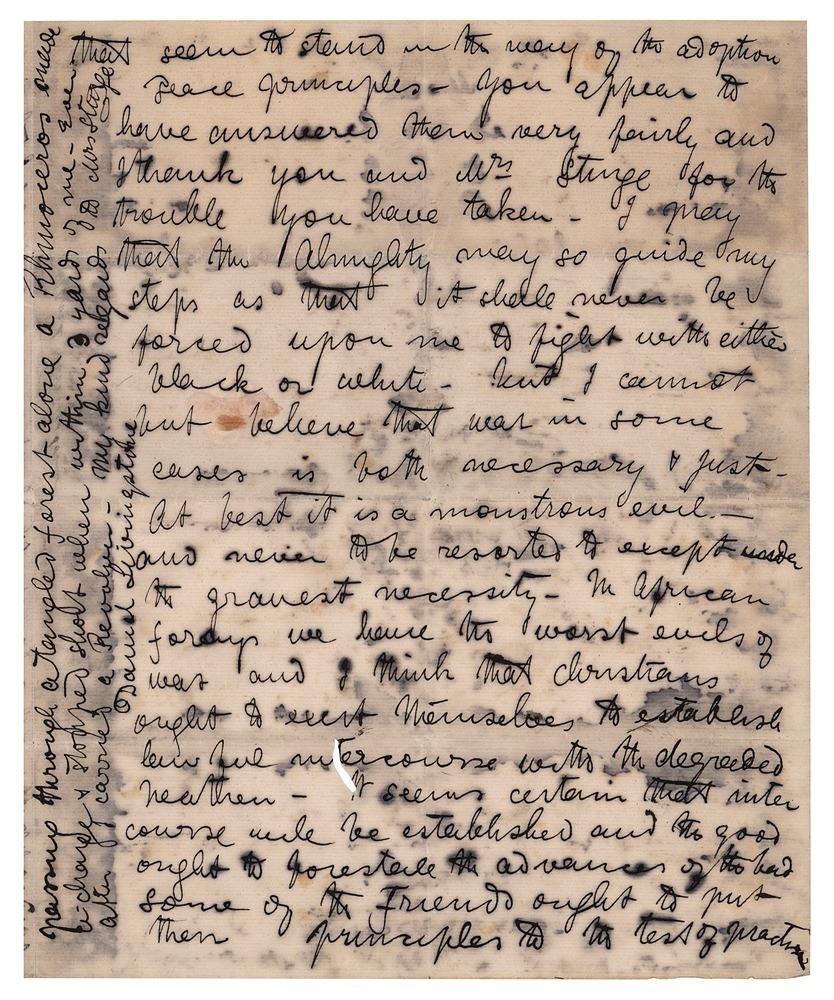 that seem to stand in the way of the adoption
peace principles - You appear to
have answered them very fairly and
I thank you and Mrs Sturge for the
trouble you have taken - I pray
that the Almighty may so guide my
steps as that it shall never be
forced upon me to fight with either
black or white - but I cannot
but believe that war in some
cases is both necessary & just -
At best it is a monstrous evil. -
and never to be resorted to except under
the gravest necessity - In African
forays we have the worst evils of
war and I think that Christians
ought to exert themselves to establish
lawful intercourse with the degraded
heathen - It seems certain that inter
course will be established and the good
ought to forestall the advances of the bad
some of the Friends ought to put
their principles to the test of practice
passing through a tangled forest alone a Rhinoceros made
a charge & stopped short when within 3 yards of me - Ever
after carried a Revolver - My kind regards to Mrs Sturge
David Livingstone